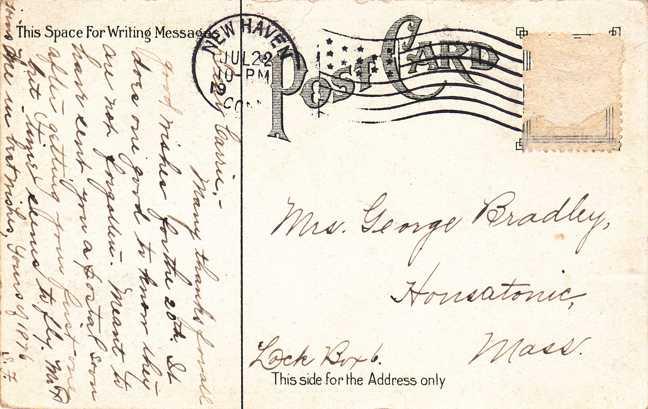 This Space For Writing Messages
POST CARD
NEW HAVEN
JUL 22
10-PM
CONN
Carrie,-
Many thanks for all
good wishes for the 20th. It
does one good to know they
are not forgotten. Meant to
have sent you a postal soon
after getting your first one
but time seems to fly.
best wishes, Yours of 1876
Mrs. George Bradley,
Housatonic,
Mass.
Lock Box 6.
This side for the Address only